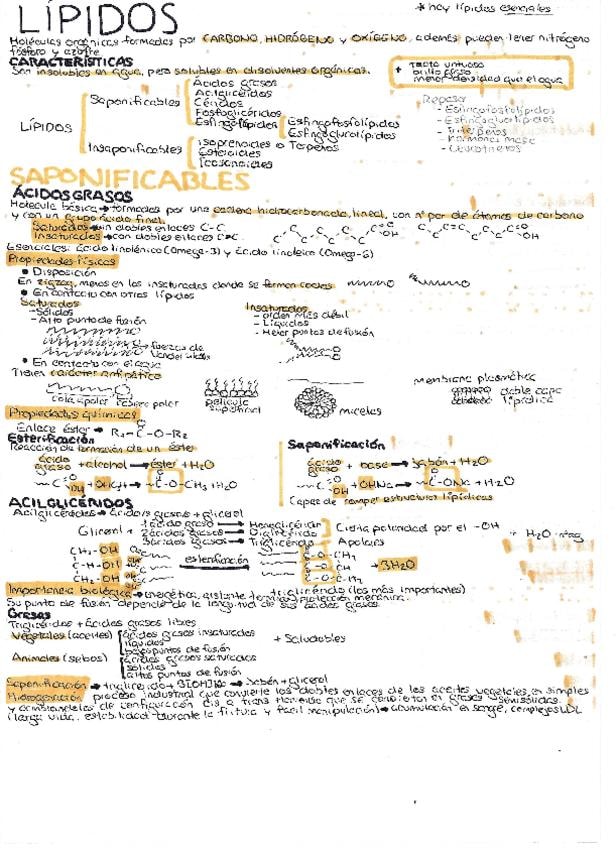 * hay lípidos esenciales
LÍPIDOS
Moléculas orgánicas formadas por CARBONO, HIDRÓGENO y OXÍGENO, además pueden tener nitrógeno
fósforo y azufre
CARACTERÍSTICAS
Son insolubles en agua, pero solubles en disolventes orgánicos.
+ tacto untuoso
brillo graso
menor densidad que el agua
LÍPIDOS
Saponificables
Ácidos grasos
Acilglicéridos
Céridos
Fosfoglicéridos
Esfingolípidos
Esfingofosfolípidos
Esfingoglucolípidos
Insaponificables
Isoprenoides o Terpenos
Esteroides
Icosanoides
Repaso
- Esfingofosfolípidos
- Esfingoglucolípidos
- Triterpenos
- Hormonas
- Leucotrienos
SAPONIFICABLES
ÁCIDOS GRASOS
Molécula básica → formadas por una cadena hidrocarbonada, lineal, con nº par de átomos de carbono
y con un grupo ácido final.
Saturados → sin dobles enlaces C-C.
Insaturados → con dobles enlaces C=C.
Esenciales: ácido linolénico (Omega-3) y ácido linoleico (Omega-6)
Propiedades físicas
• Disposición
En zigzag, menos en los insaturados donde se forman codos
• En contacto con otros lípidos
Saturados
- Sólidos
- Alto punto de fusión
fuerzas de
Van der Waals
Insaturados
- orden más débil
- Líquidos
- Menor puntos de fusión
• En contacto con el agua
Tienen carácter anfipático
cola apolar
cabeza polar
película
superficial
micelas
membrana plasmática
doble capa
lipídica
Propiedades químicas
Enlace éster → R₁-C-O-R₂
Esterificación
Reacción de formación de un éster
ácido graso + alcohol → éster + H₂O
Saponificación
ácido graso + base → jabón + H₂O
Capaz de romper estructuras lipídicas
ACILGLICÉRIDOS
Acilglicéridos → Ácidos grasos + glicerol
Glicerol +
1 ácido graso → Monoglicérido
2 ácidos grasos → Diglicérido
3 ácidos grasos → Triglicérido
Cierta polaridad por el -OH
Apolares
CH₂-OH
C-H-OH
CH₂-OH
esterificación
+ 3H₂O
Importancia biológica → energética, aislante térmico, protección mecánica.
triglicérido (los más importantes)
Su punto de fusión depende de la longitud de sus ácidos grasos.
Grasas
Triglicéridos + Ácidos grasos libres
Vegetales (aceites)
ácidos grasos insaturados
líquidos
bajos puntos de fusión
+ Saludables
Animales (sebos)
ácidos grasos saturados
sólidos
altos puntos de fusión
Saponificación → triglicérido + 3(OH)Na → jabón + glicerol
Hidrogenación → proceso industrial que convierte los dobles enlaces de los aceites vegetales en simples
(larga vida, estabilidad durante la fritura y fácil manipulación) → acumulación en sangre, complejos LDL